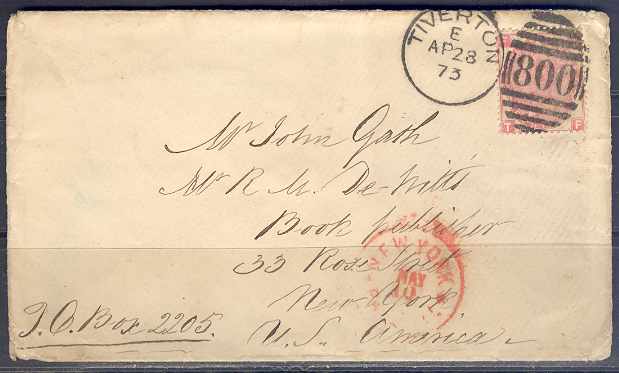 TIVERTON
E
AP 28
73
800
T F
Mr John Gath
Mr R. M. De Witt's
Book Publisher
33 Rose Street
New York
U.S. America
P.O. Box 2205.
NEW YORK
MAY
10